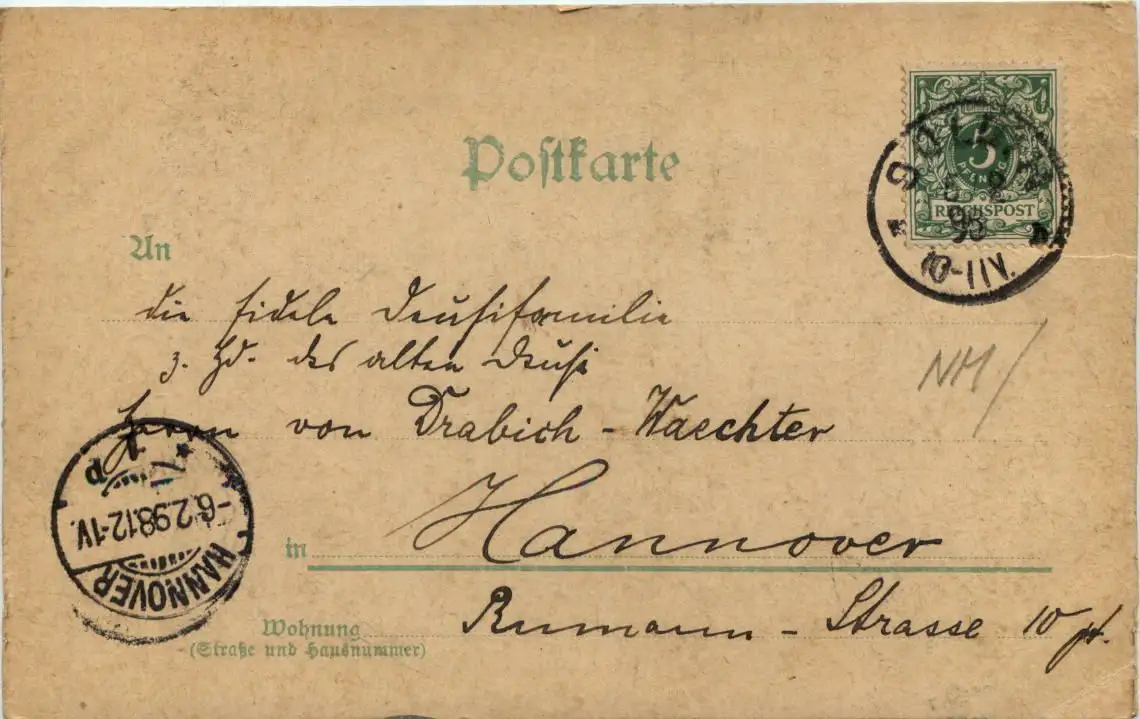 Postkarte
5
PFENNIG
REICHSPOST
98
10-11V.
An
die fidele Deusifamilie
z. Hd. des alten Deusi
Herrn von Drabich-Waechter
NM/
in Hannover
HANNOVER
-6.2.98.12-1V.
Wohnung
(Straße und Hausnummer)
Rumann-Strasse 10 pt.